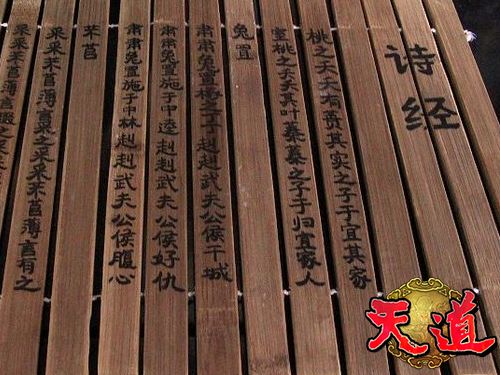 诗经
桃之夭夭有蕡其实之子于宜其家
室桃之夭夭其叶蓁蓁之子于归宜家人
兔罝
肃肃兔罝椓之丁丁赳赳武夫公侯干城
肃肃兔罝施于中逵赳赳武夫公侯好仇
肃肃兔罝施于中林赳赳武夫公侯腹心
芣苢
采采芣苢薄言采之采采芣苢薄言有之
采采芣苢薄言掇之采
天道